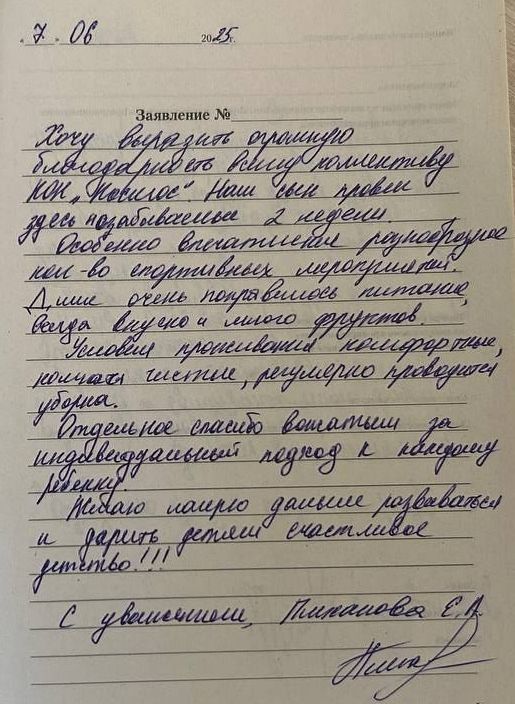 « 7 » 06 2025г.
Заявление №
Хочу выразить огромную
благодарность всему коллективу
КОК „Космос". Наш сын провел
здесь незабываемые 2 недели.
Особенно впечатлил разнообразное
кол-во спортивных мероприятий.
Диме очень понравилось питание,
всегда вкусно и много фруктов.
Условия проживания комфортные,
комнаты чистые, регулярно проводится
уборка.
Отдельное спасибо вожатым за
индивидуальный подход к каждому
ребенку.
Желаю лагерю дальше развиваться
и дарить детям счастливое
детство!!!
С уважением, Е.А.